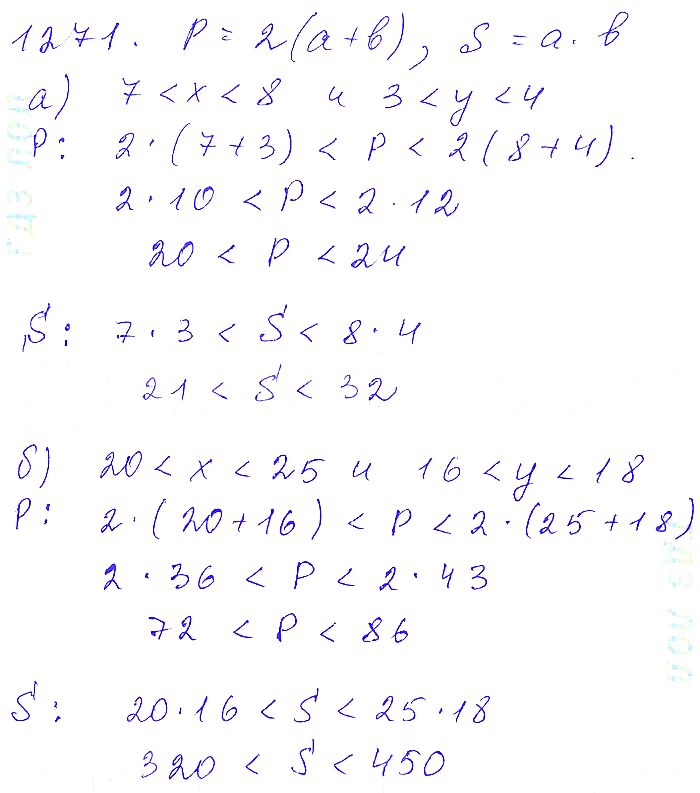 1271. P = 2(a+b), S = a · b
а) 7 < x < 8 и 3 < y < 4
P: 2 · (7+3) < P < 2(8+4).
2 · 10 < P < 2 · 12
20 < P < 24
S: 7 · 3 < S < 8 · 4
21 < S < 32
б) 20 < x < 25 и 16 < y < 18
P: 2 · (20+16) < P < 2 · (25+18)
2 · 36 < P < 2 · 43
72 < P < 86
S: 20 · 16 < S < 25 · 18
320 < S < 450